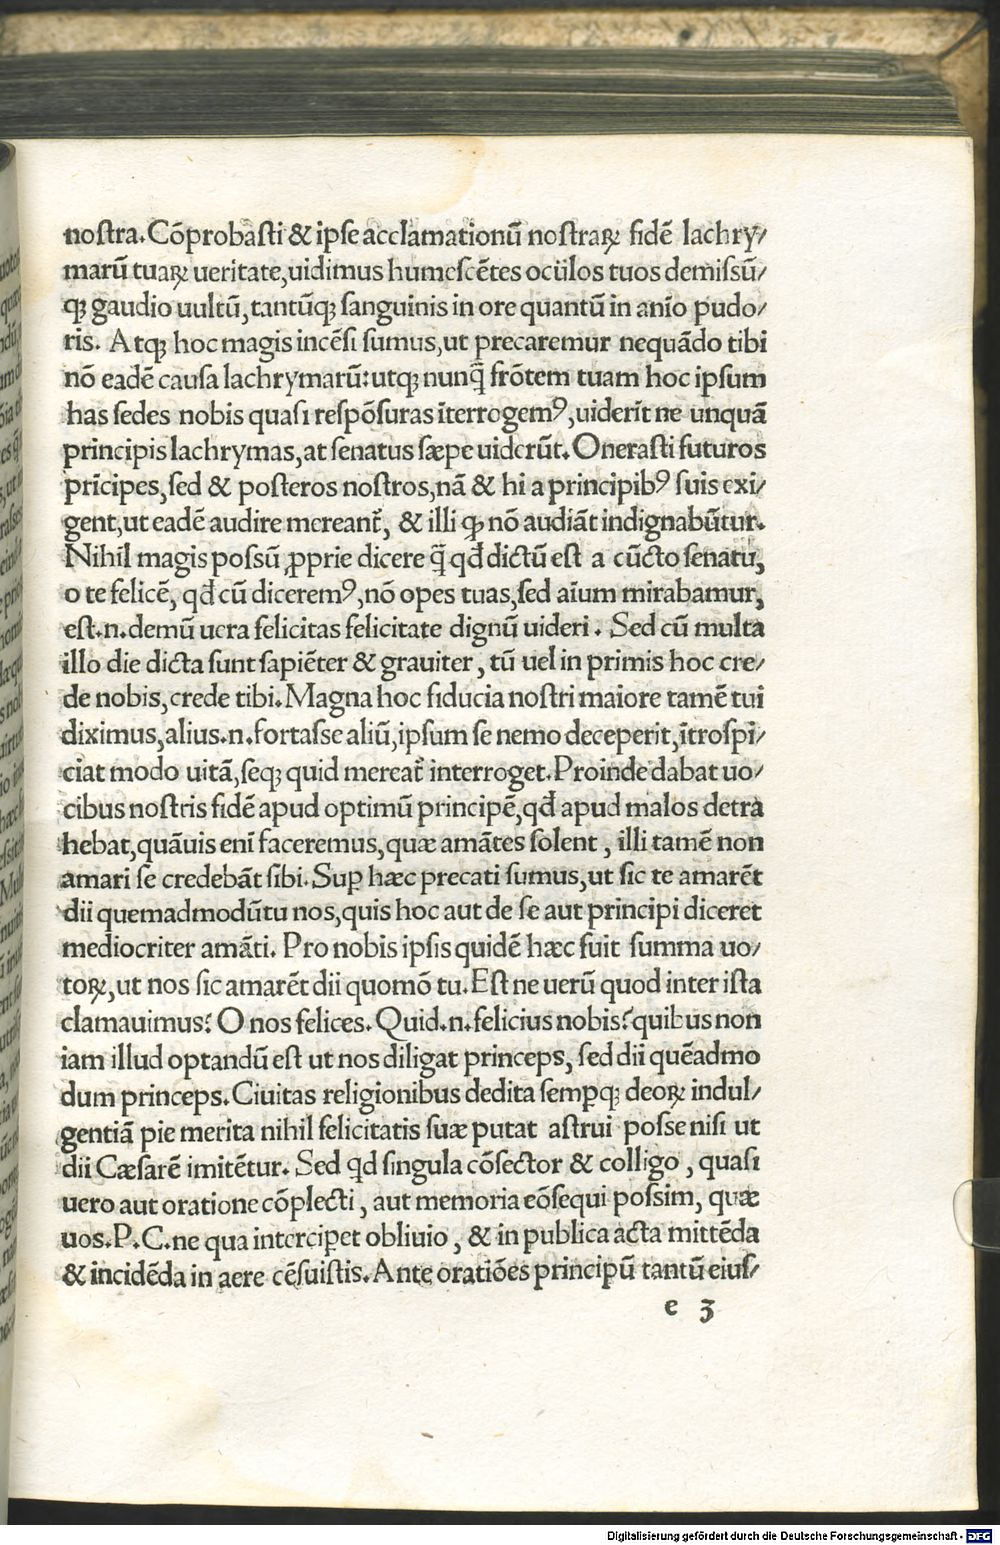 noſtra.Cōprobaſti & ipſe acclamationū noſtraꝝ fidē lachry/
marū tuaꝝ ueritate,uidimus humeſcētes oculos tuos demiſſū/
qꝫ gaudio uultū,tantūqꝫ ſanguinis in ore quantū in anīo pudo/
ris. Atqꝫ hoc magis incēſi ſumus,ut precaremur nequādo tibi
nō eadē cauſa lachrymarū:utqꝫ nunq̄ frōtem tuam hoc ipſum
has ſedes nobis quaſi reſpōſuras īterrogemꝰ,uiderīt ne unquā
principis lachrymas,at ſenatus ſæpe uiderūt.Oneraſti futuros
prīcipes,ſed & poſteros noſtros,nā & hi a principibꝰ ſuis exi/
gent,ut eadē audire mereant᷑, & illi ꝙ nō audiāt indignabūtur.
Nihil magis poſſū ꝓprie dicere q̄ qđ dictū eſt a cūcto ſenatu,
o te felicē, qđ cū diceremꝰ,nō opes tuas,ſed aīum mirabamur,
eſt.n.demū uera felicitas felicitate dignū uideri. Sed cū multa
illo die dicta ſunt ſapiēter & grauiter, tū uel in primis hoc cre/
de nobis,crede tibi.Magna hoc fiducia noſtri maiore tamē tui
diximus,alius.n.fortaſſe aliū,ipſum ſe nemo deceperit,ītroſpi/
ciat modo uitā,ſeqꝫ quid mereat᷑ interroget.Proinde dabat uo/
cibus noſtris fidē apud optimū principē,qđ apud malos detra
hebat,quāuis enī faceremus,quæ amātes ſolent, illi tamē non
amari ſe credebāt ſibi.Suꝑ hæc precati ſumus,ut ſic te amarēt
dii quemadmodūtu nos,quis hoc aut de ſe aut principi diceret
mediocriter amāti. Pro nobis ipſis quidē hæc fuit ſumma uo/
toꝝ,ut nos ſic amarēt dii quomō tu.Eſt ne uerū quod inter iſta
clamauimus? O nos felices.Quid.n.felicius nobis?quibus non
iam illud optandū eſt ut nos diligat princeps, ſed dii quēadmo
dum princeps.Ciuitas religionibus dedita ſempqꝫ deoꝝ indul/
gentiā pie merita nihil felicitatis ſuæ putat aſtrui poſſe niſi ut
dii Cæſarē imitētur. Sed qđ ſingula cōſector & colligo, quaſi
uero aut oratione cōplecti, aut memoria cōſequi poſſim, quæ
uos.P.C.ne qua intercipet obliuio, & in publica acta mittēda
& incidēda in aere cēſuiſtis.Ante oratiōes principū tantū eiuſ/
e 3
Digitalisierung gefördert durch die Deutsche Forschungsgemeinschaft - DFG